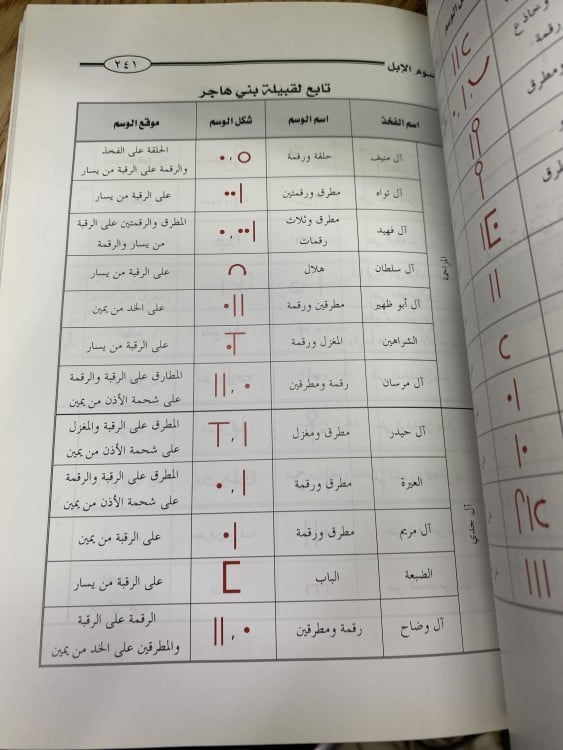 ٢٤١
وسوم الإبل
تابع لقبيلة بني هاجر
اسم الفخذ اسم الوسم شكل الوسم موقع الوسم
آل منيف حلقة ورقمة الحلقة على الفخذ
والرقمة على الرقبة من يسار
آل تواه مطرق ورقمتين على الرقبة من يسار
آل فهيد مطرق وثلاث المطرق والرقمتين على الرقبة
رقمات من يسار والرقمة
آل سلطان هلال على الرقبة من يسار
آل أبو ظهير مطرقين ورقمة على الخد من يمين
الشراهين المغزل ورقمة على الرقبة من يسار
آل مرسان رقمة ومطرقين المطارق على الرقبة والرقمة
على شحمة الأذن من يمين
المزاحمة
آل حيدر مطرق ومغزل المطرق على الرقبة والمغزل
على شحمة الأذن من يمين
العيرة مطرق ورقمة المطرق على الرقبة والرقمة
على شحمة الأذن من يمين
آل مريم مطرق ورقمة على الرقبة من يمين
الضبعة الباب على الرقبة من يسار
آل وضاح رقمة ومطرقين الرقمة على الرقبة
والمطرقين على الخد من يمين
آل جدي